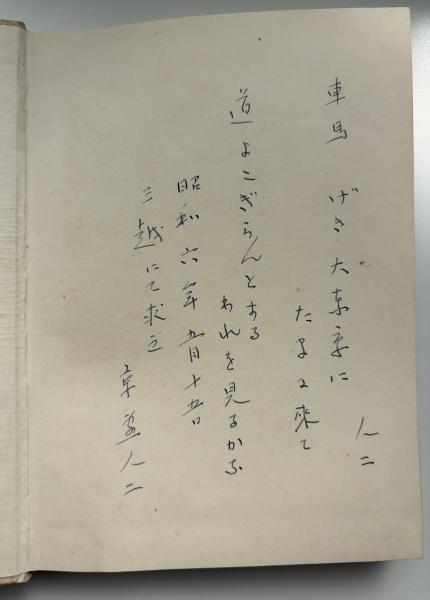 車馬 げき大東京に
人二
たま々來て
道よこぎらんとする
われを見るかな
昭和六年五月十五日
三越にて求之
人二